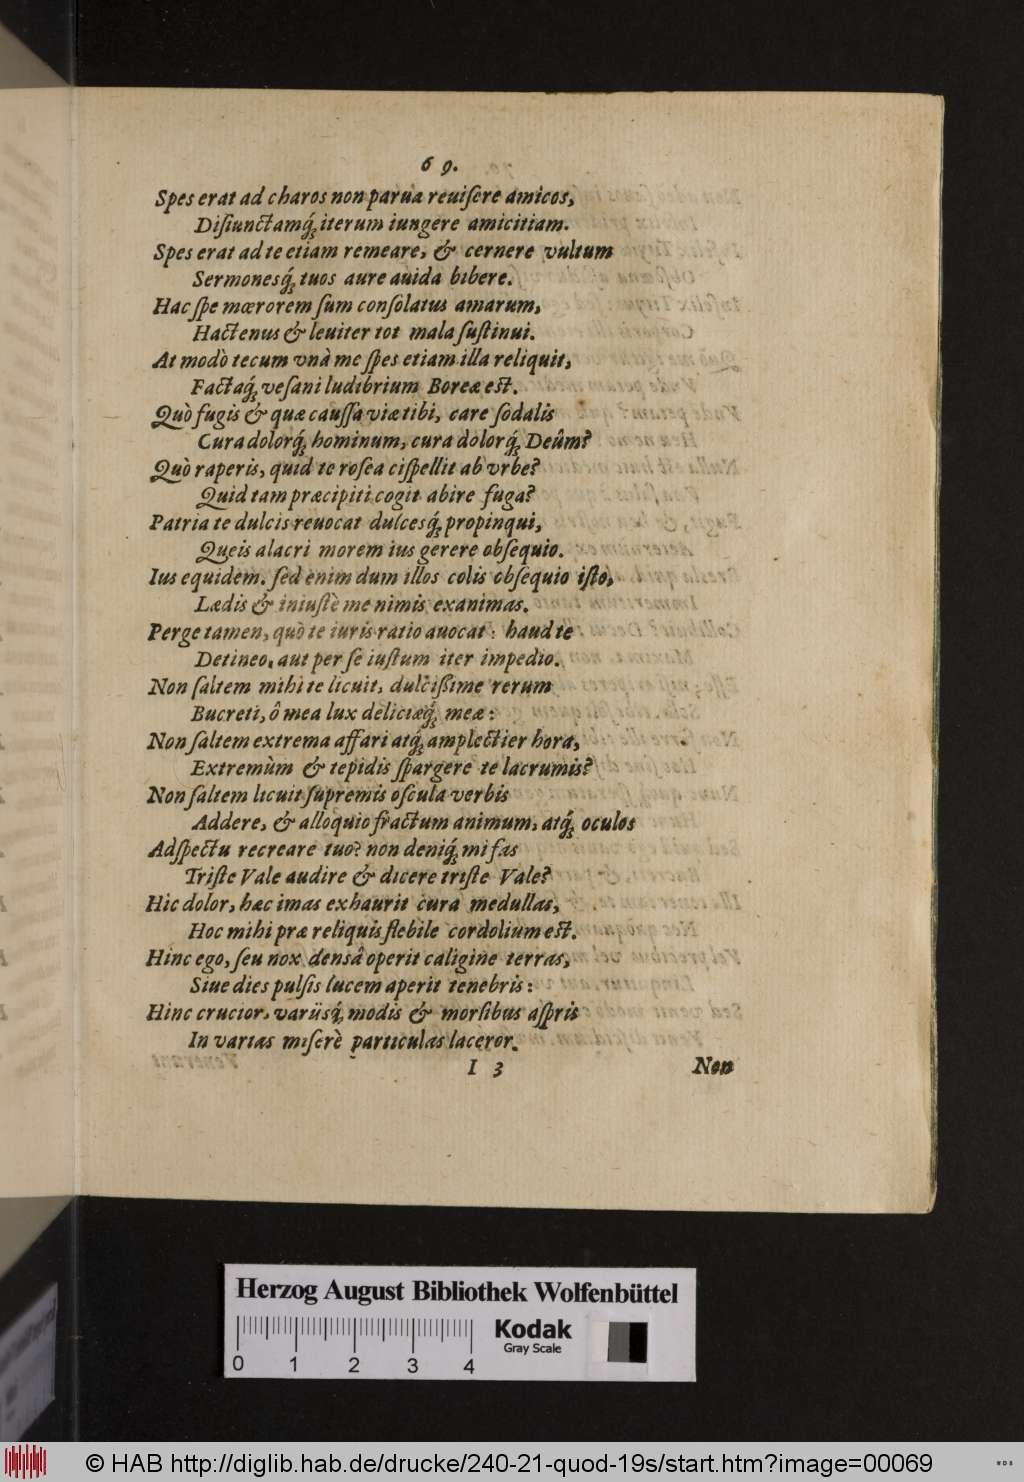 69.
Spes erat ad charos non parua reuiſere amicos,
Diſiunctamq́; iterum iungere amicitiam.
Spes erat ad te etiam remeare, & cernere vultum
Sermonesq́; tuos aure auida bibere.
Hac ſpe mœrorem ſum conſolatus amarum,
Hactenus & leuiter tot mala ſuſtinui.
At modò tecum vnà me ſpes etiam illa reliquit,
Factaq́; veſani ludibrium Boreæ eſt.
Quò fugis & quæ cauſſa viæ tibi, care ſodalis
Cura dolorq́; hominum, cura dolorq́; Deûm?
Quò raperis, quid te roſea ciſpellit ab vrbe?
Quid tam præcipiti cogit abire fuga?
Patria te dulcis reuocat dulcesq́; propinqui,
Queis alacri morem ius gerere obſequio.
Ius equidem. ſed enim dum illos colis obſequio iſto,
Lædis & iniuſtè me nimis exanimas.
Perge tamen, quò te iuris ratio auocat: haud te
Detineo, aut per ſe iuſtum iter impedio.
Non ſaltem mihi te licuit, dulciſſime rerum
Bucreti, ô mea lux deliciæq́; meæ:
Non ſaltem extrema affari atq́; amplectier hora,
Extremùm & tepidis ſpargere te lacrumis?
Non ſaltem licuit ſupremis oſcula verbis
Addere, & alloquio fractum animum, atq́; oculos
Adſpectu recreare tuo? non deniq́; mi fas
Triſte Vale audire & dicere triſte Vale?
Hic dolor, hæc imas exhaurit cura medullas,
Hoc mihi præ reliquis flebile cordolium eſt.
Hinc ego, ſeu nox densâ operit caligine terras,
Siue dies pulſis lucem aperit tenebris:
Hinc crucior, variisq́; modis & morſibus aſpris
In varias miſerè particulas laceror.
I 3 Non
Herzog August Bibliothek Wolfenbüttel
0 1 2 3 4
Kodak
Gray Scale
© HAB http://diglib.hab.de/drucke/240-21-quod-19s/start.htm?image=00069